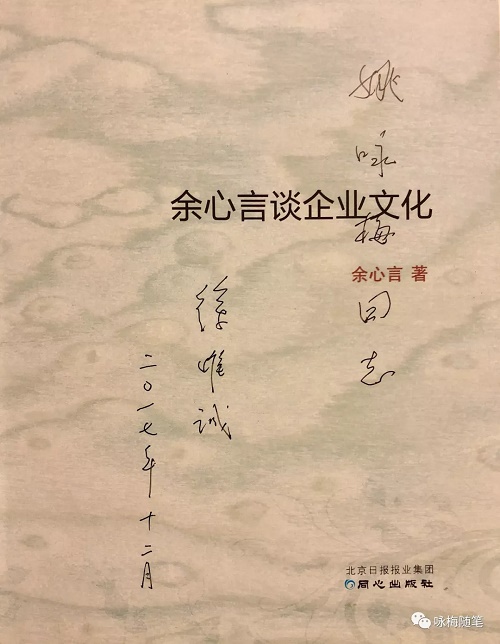 姚咏梅同志
余心言谈企业文化
余心言 著
徐惟诚
二〇一七年十二月
北京日报报业集团
同心出版社
咏梅随笔